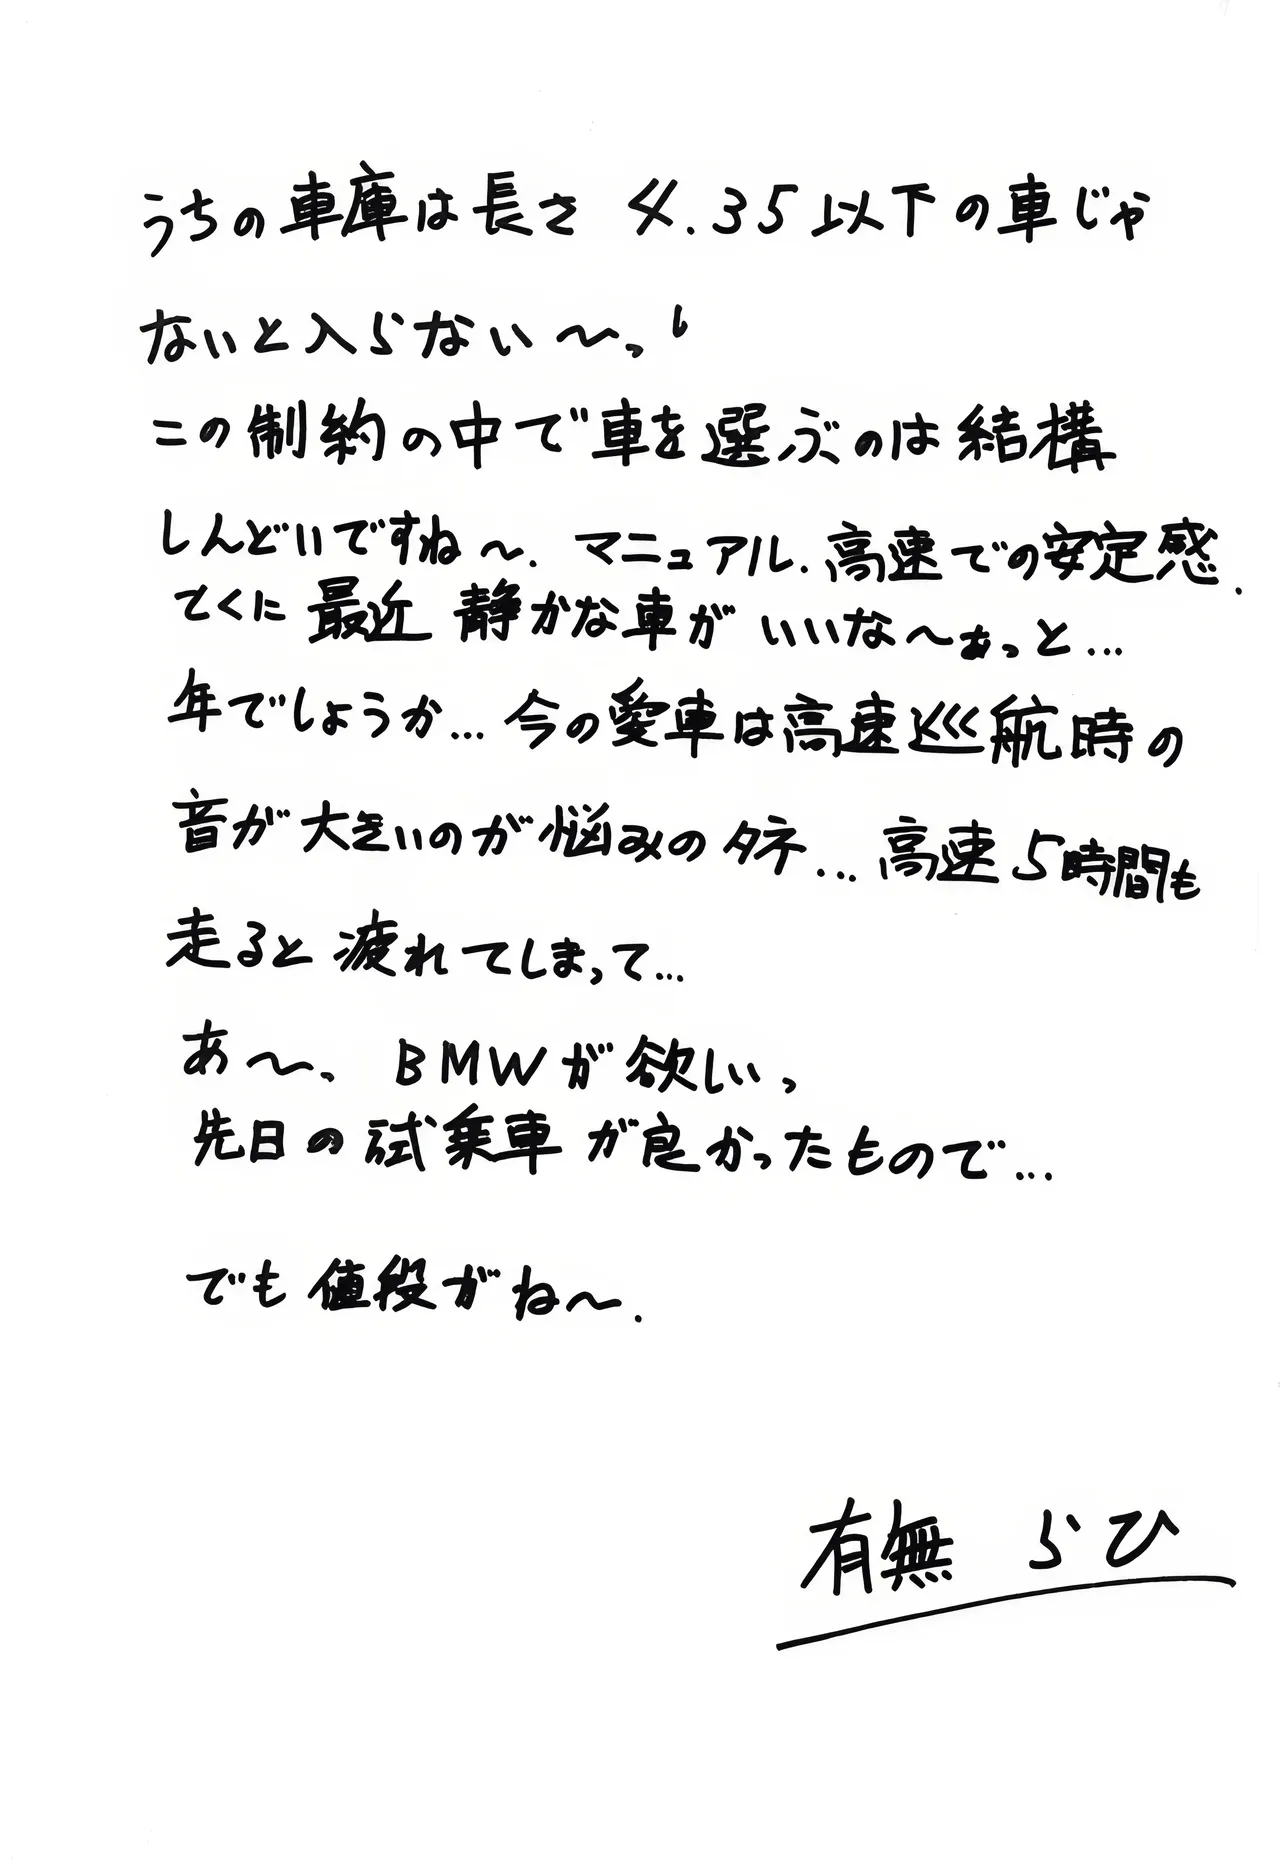 うちの車庫は長さ 4.35以下の車じゃ
ないと入らない〜っ!
この制約の中で車を選ぶのは結構
しんどいですね〜. マニュアル. 高速での安定感.
とくに 最近 静かな車が いいな〜ぁっと...
年でしょうか... 今の愛車は高速巡航時の
音が大きいのが悩みのタネ... 高速5時間も
走ると疲れてしまって...
あ〜、 BMWが欲しいっ
先日の試乗車が良かったもので...
でも値段がね〜.
有無 らひ